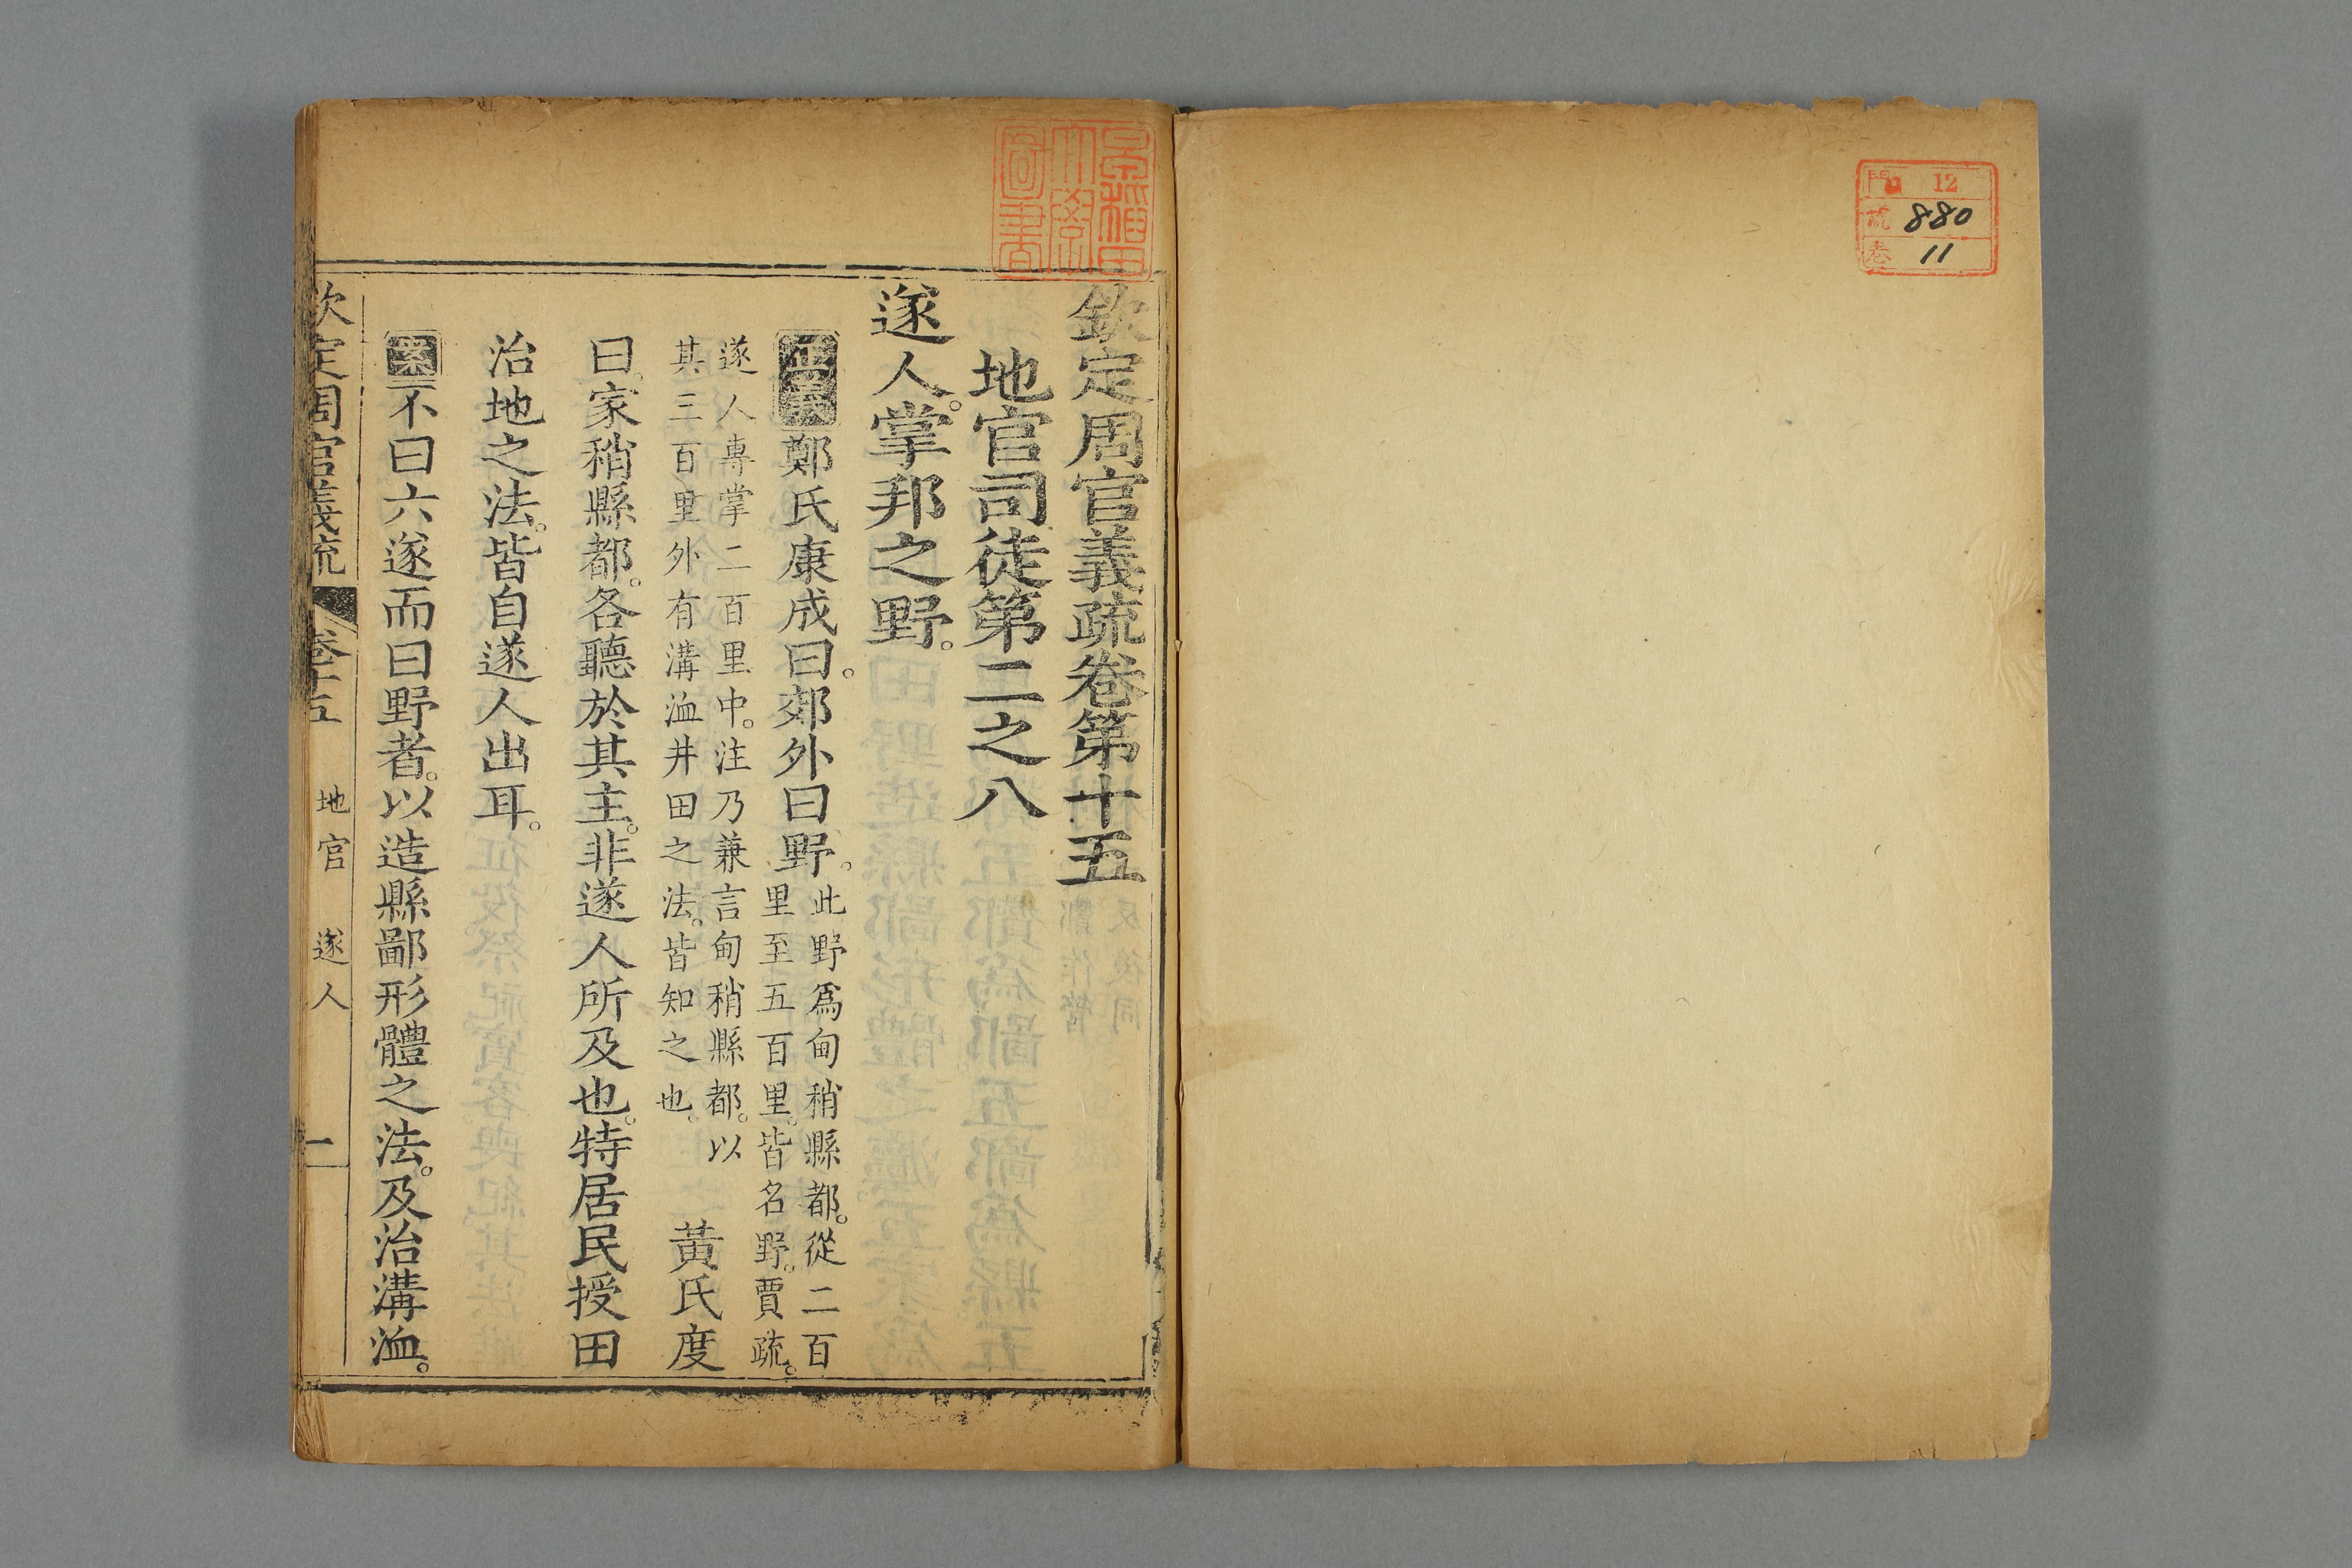 門 12
號 880
卷 11
早稲田
大學
圖書
欽定周官義疏卷第十五
地官司徒第二之八
遂人。掌邦之野。
正義 鄭氏康成曰。郊外曰野。此野爲甸稍縣都。從二百
里至五百里。皆名野。賈疏。
遂人專掌二百里中。注乃兼言甸稍縣都。以
其三百里外有溝洫井田之法。皆知之也。 黃氏度
曰。家稍縣都。各聽於其主。非遂人所及也。特居民授田
治地之法。皆自遂人出耳。
案 不曰六遂而曰野者。以造縣鄙形體之法。及治溝洫。
欽定周官義疏 卷十五 地官 遂人 一